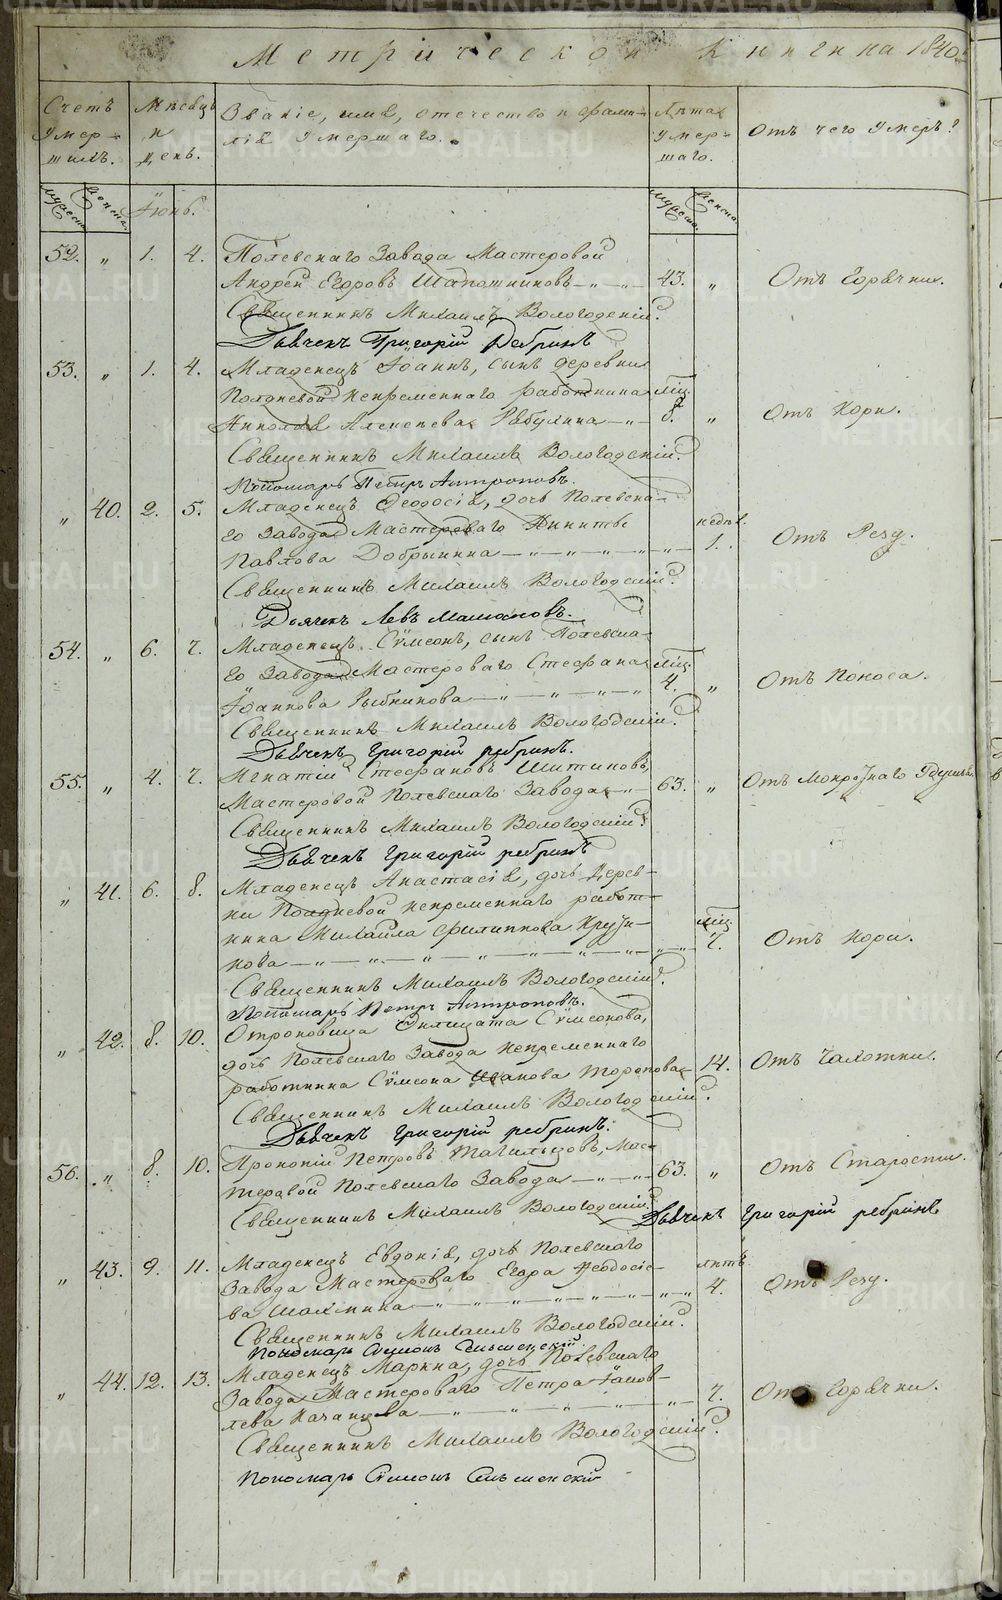 Метрической Книги на 1840
Счетъ умершихъ.
Мѣсяцъ и день.
Званіе, имя, отечество и фамилія умершаго.
Лѣта умершаго.
Отъ чего умеръ?
мужеска женска
Іюнь.
мужеска женска
52. „ 1. 4. Полевскаго Завода Мастеровой
Андрей Егоровъ Шапошниковъ 43. „ Отъ Горячки.
Священникъ Михаилъ Вологодскій.
Дьячекъ Григорій Ребринъ
53. „ 1. 4. Младенецъ Іоаннъ, сынъ деревни
Полдневой непременнаго работника мѣс.
Николая Алексеева Рябухина 8. „ Отъ Кори.
Священникъ Михаилъ Вологодскій.
Пономарь Петръ Антроповъ.
„ 40. 2. 5. Младенецъ Феодосія, дочь Полевска-
го Завода Мастероваго Никиты недѣл.
Павлова Добрынина 1. Отъ Резу.
Священникъ Михаилъ Вологодскій.
Дьячекъ Левъ
54. „ 6. 7. Младенецъ Сѵмеонъ, сынъ Полевска-
го Завода Мастероваго Стефана мѣс.
Іоаннова Рыбникова 4. „ Отъ Поноса.
Священникъ Михаилъ Вологодскій.
Дьячекъ Григорій Ребринъ.
55. „ 4. 7. Игнатій Стефановъ Шитиковъ,
Мастеровой Полевскаго Завода 63. „ Отъ Мокротнаго Удушья.
Священникъ Михаилъ Вологодскій.
Дьячекъ Григорій Ребринъ
„ 41. 6. 8. Младенецъ Анастасія, дочь Дерев-
ни Полдневой непременнаго работ-
ника Михаила Филиппова мѣс.
7. Отъ Кори.
Священникъ Михаилъ Вологодскій.
Пономарь Петръ Антроповъ.
„ 42. 8. 10. Отроковица Сѵмеонова,
дочь Полевскаго Завода непременнаго
работника Сѵмеона Иванова Торопова 14. Отъ Чахотки.
Священникъ Михаилъ Вологодскій.
Дьячекъ Григорій Ребринъ.
56. „ 8. 10. Прокопій Петровъ Тагильцовъ, Мас-
теровой Полевскаго Завода 63. „ Отъ Старости.
Священникъ Михаилъ Вологодскій.
Дьячекъ Григорій Ребринъ
„ 43. 9. 11. Младенецъ Евдокія, дочь Полевскаго
Завода Мастероваго Егора Феодосіе- лѣтъ
ва Шахмина 4. Отъ Резу.
Священникъ Михаилъ Вологодскій.
Пономарь Сѵмеонъ
„ 44. 12. 13. Младенецъ Марина, дочь Полевскаго
Завода Мастероваго Петра Іаков-
лева 7. Отъ Горячки.
Священникъ Михаилъ Вологодскій.
Пономарь Сѵмеонъ
METRIKI.GASU-URAL.RU